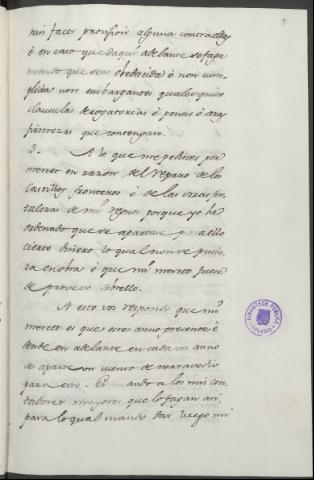 nin facer provision alguna contra ellos
é en caso que daqui adelante se faga
mando que sea obedecida é non cum-
plida non embargantes qualesquier
clausulas derogatorias é penas é otras
firmezas que contengan.
3. A lo que me pedistes por
merced en razon del reparo de los
Castillos fronteros é de las otras for-
talezas de mis regnos porque yo he
ordenado que se apartase para ello
cierto dinero lo qual non se pusie-
ra en obra é que mi merced fuese
de proveer sobrello.
A esto vos respondo que mi
merced es que este año presente é
dende en adelante en cada un año
se aparte un cuento de maravedis
para esto. E mando a los mis con-
tadores mayores que lo fagan asi,
para lo qual mando dar luego mi
BIBLIOTECA PUBLICA
TOLEDO